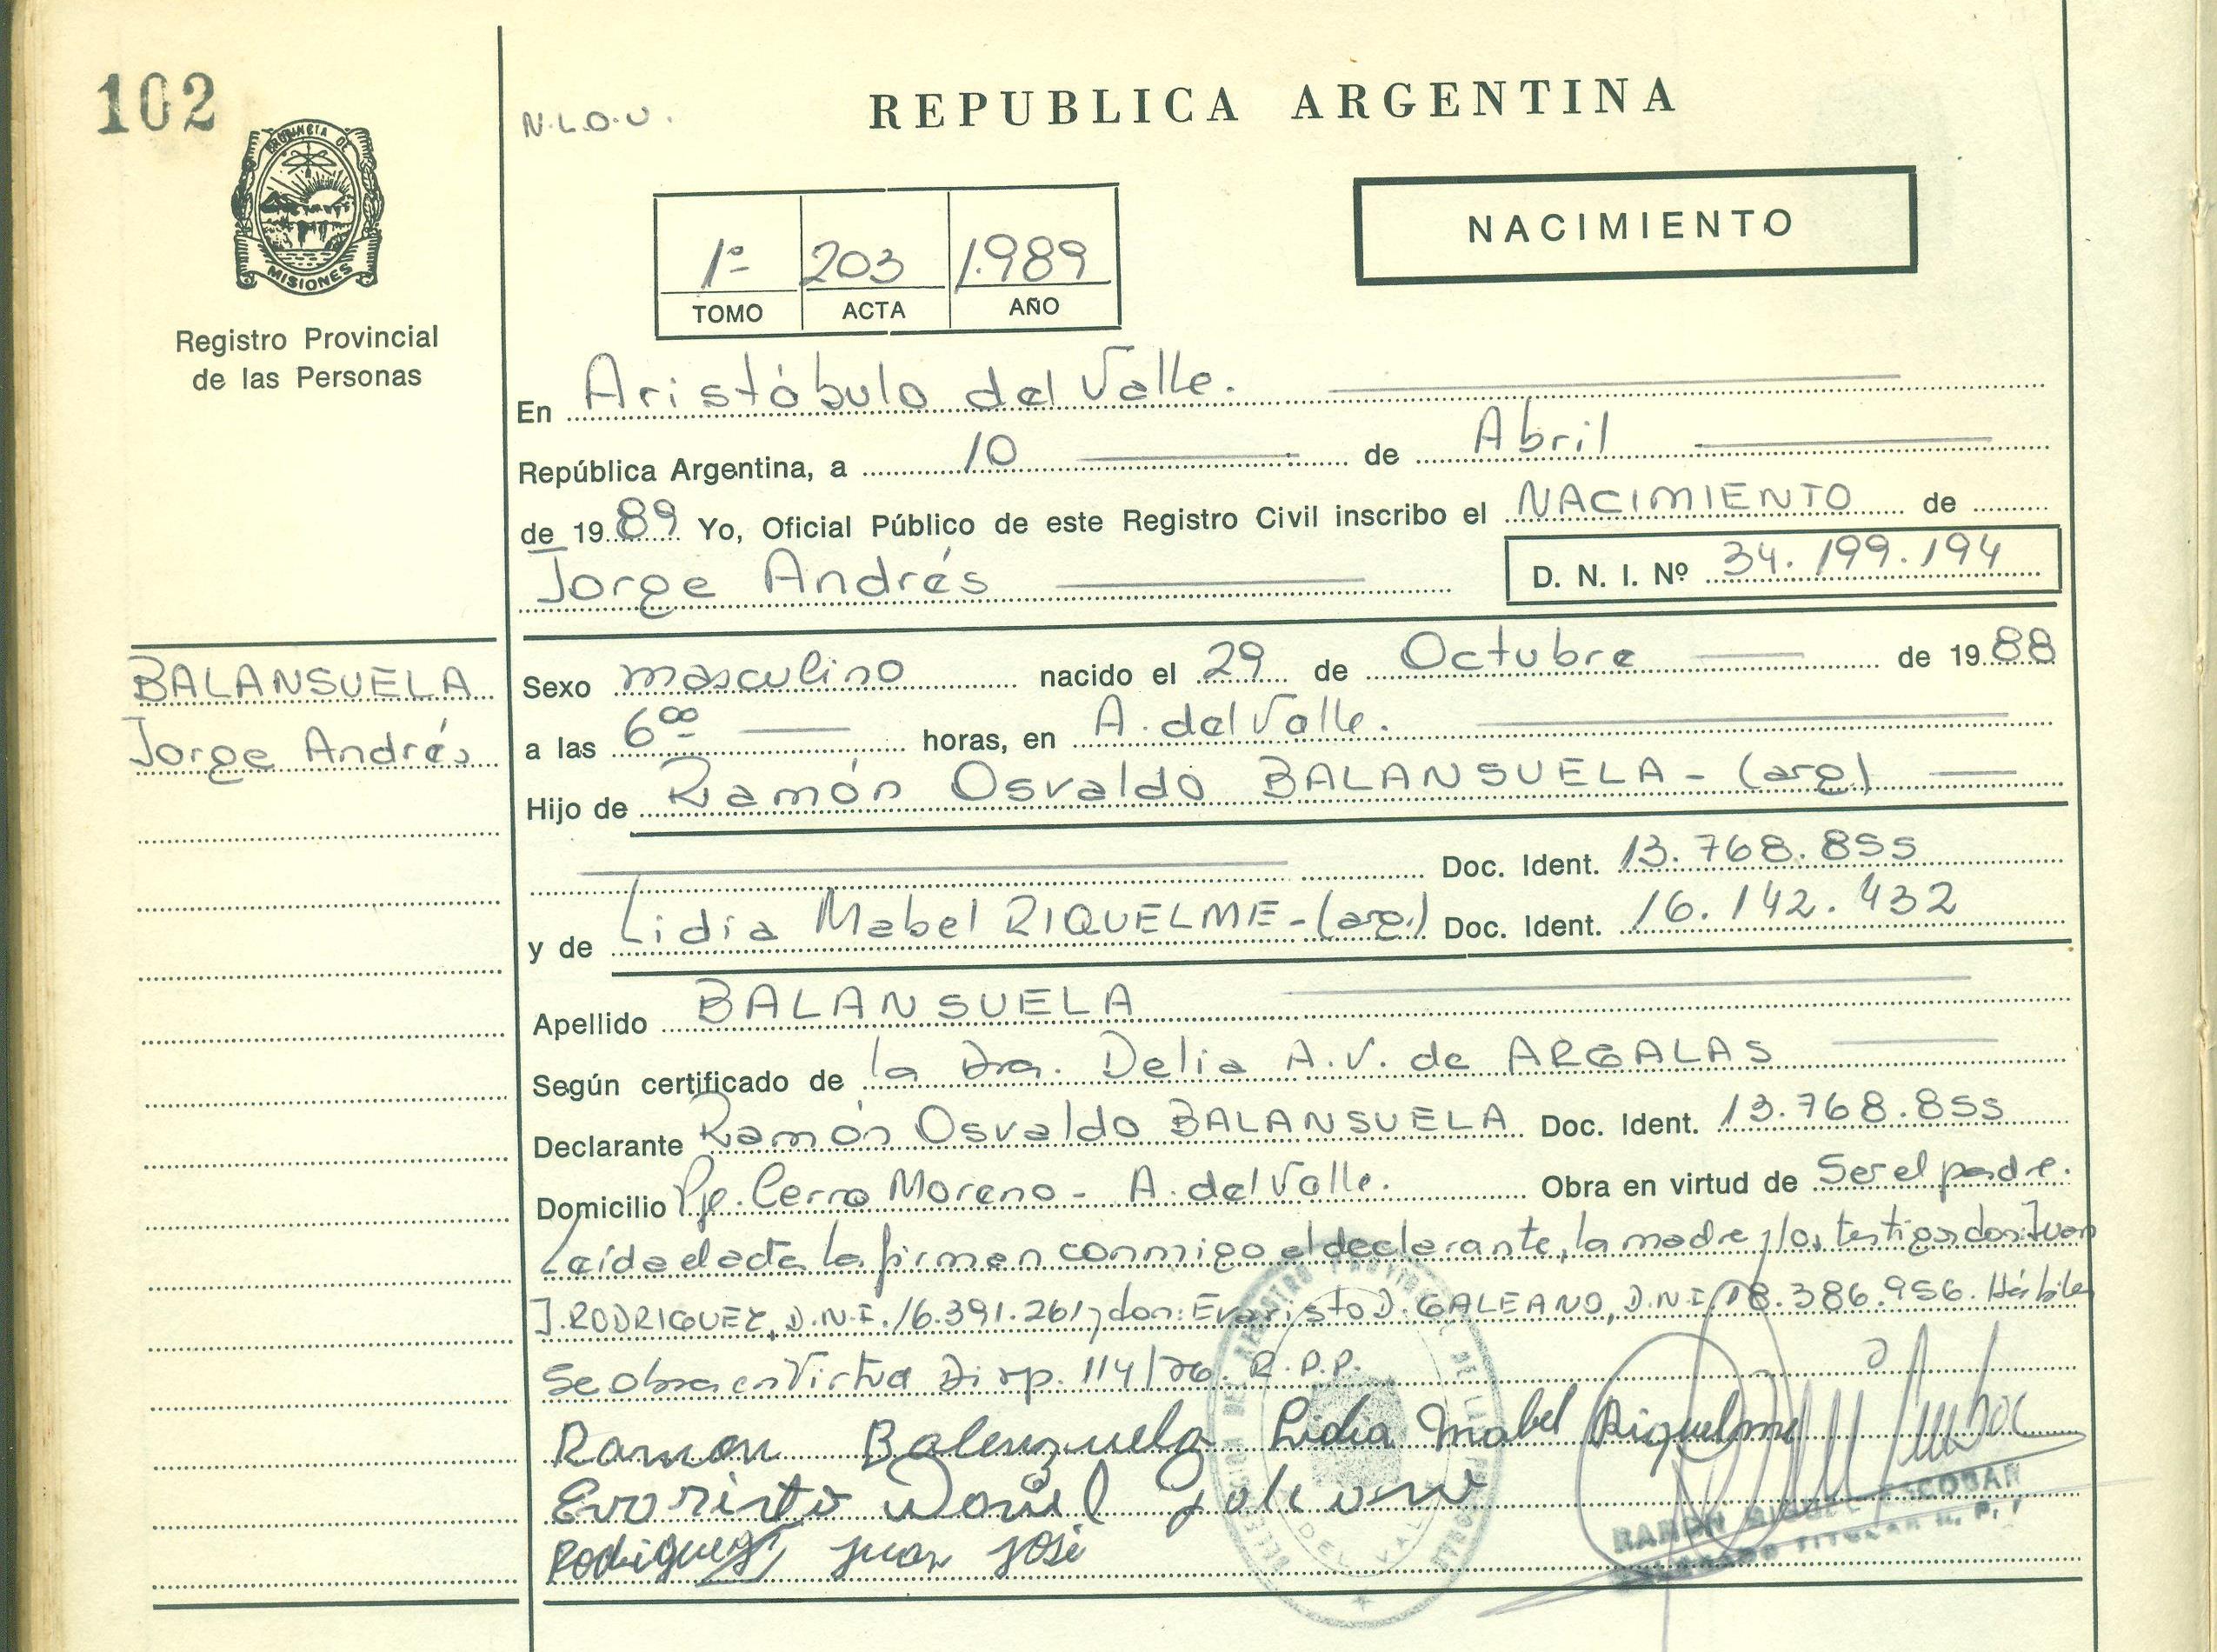 102
N.L.O.U.
REPUBLICA ARGENTINA
PROVINCIA DE
MISIONES
Registro Provincial
de las Personas
NACIMIENTO
1º 203 1.989
TOMO ACTA AÑO
En Aristóbulo del Valle.
República Argentina, a 10 de Abril
de 1989 Yo, Oficial Público de este Registro Civil inscribo el NACIMIENTO de
Jorge Andrés D. N. I. Nº 34.199.194
BALANSUELA
Jorge Andrés
Sexo masculino nacido el 29 de Octubre de 1988
a las 6 00 horas, en A. del Valle.
Hijo de Ramón Osvaldo BALANSUELA - (arg)
Doc. Ident. 13.768.855
y de Lidia Mabel RIQUELME - (arg.) Doc. Ident. 16.142.432
Apellido BALANSUELA
Según certificado de la Dra. Delia A.V. de ARGALAS
Declarante Ramón Osvaldo BALANSUELA Doc. Ident. 13.768.855
Domicilio Pje. Cerro Moreno - A. del Valle. Obra en virtud de Ser el padre.
Leída el acta la firman conmigo el declarante, la madre y los testigos don: Juan
J. RODRIGUEZ, D.N.I. 16.391.261 y don: Evaristo D. GALEANO, D.N.I. 18.386.956. Hábiles
Se obra en Virtud Disp. 114/76. R.P.P.
Ramon Balenzuela Lidia Mabel Riquelme
Evaristo Daniel Galeano
Rodriguez Juan José
RAMON MIGUEL ESCOBAR
TITULAR R. P. P.
DEL VALLE